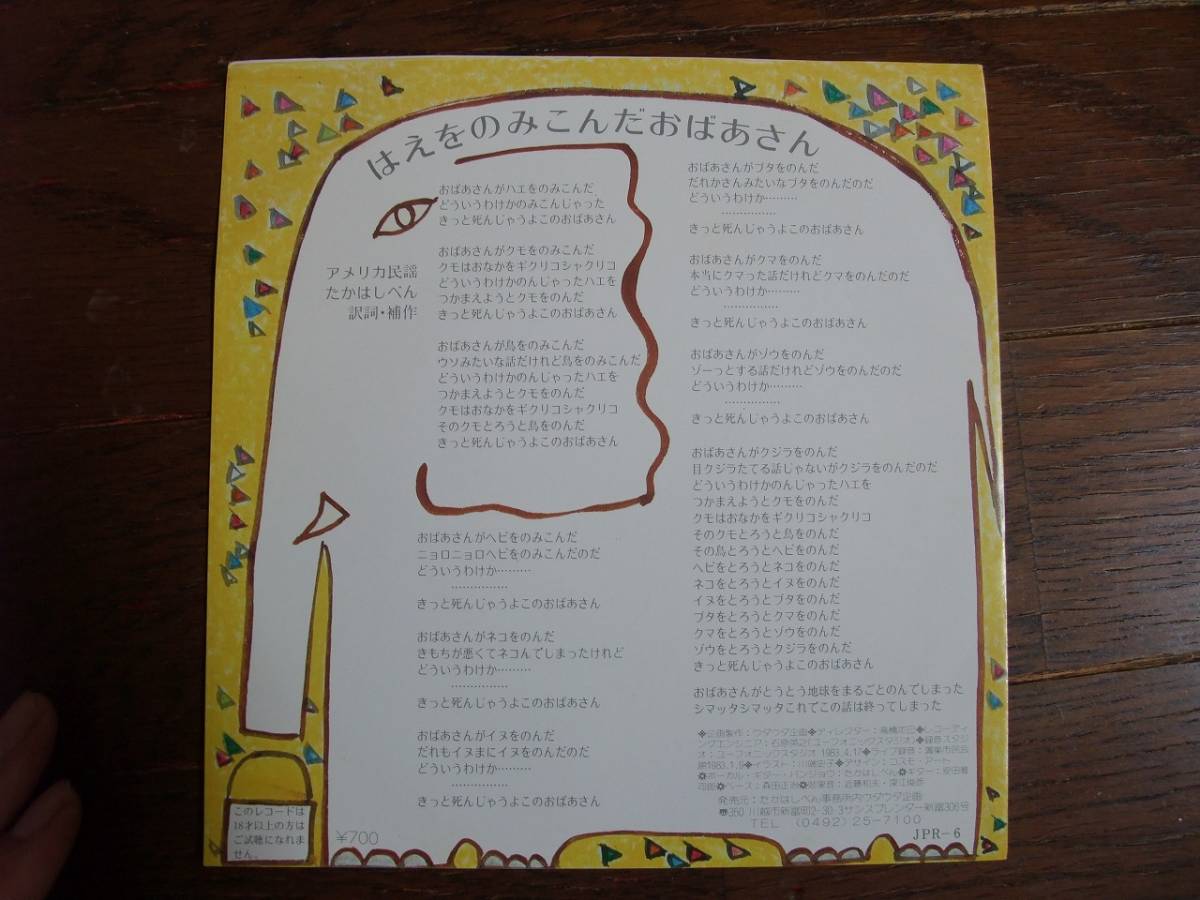 はえをのみこんだおばあさん
アメリカ民謡
たかはしべん
訳詞・補作
おばあさんがハエをのみこんだ
どういうわけかのみこんじゃった
きっと死んじゃうよこのおばあさん
おばあさんがクモをのみこんだ
クモはおなかをギクリコシャクリコ
どういうわけかのんじゃったハエを
つかまえようとクモをのんだ
きっと死んじゃうよこのおばあさん
おばあさんが鳥をのみこんだ
ウソみたいな話だけれど鳥をのみこんだ
どういうわけかのんじゃったハエを
つかまえようとクモをのんだ
クモはおなかをギクリコシャクリコ
そのクモとろうと鳥をのんだ
きっと死んじゃうよこのおばあさん
おばあさんがヘビをのみこんだ
ニョロニョロヘビをのみこんだのだ
どういうわけか………
……………
きっと死んじゃうよこのおばあさん
おばあさんがネコをのんだ
きもちが悪くてネコんでしまったけれど
どういうわけか………
……………
きっと死んじゃうよこのおばあさん
おばあさんがイヌをのんだ
だれもイヌまにイヌをのんだのだ
どういうわけか………
……………
きっと死んじゃうよこのおばあさん
おばあさんがブタをのんだ
だれかさんみたいなブタをのんだのだ
どういうわけか………
……………
きっと死んじゃうよこのおばあさん
おばあさんがクマをのんだ
本当にクマった話だけれどクマをのんだのだ
どういうわけか………
……………
きっと死んじゃうよこのおばあさん
おばあさんがゾウをのんだ
ゾーっとする話だけれどゾウをのんだのだ
どういうわけか………
……………
きっと死んじゃうよこのおばあさん
おばあさんがクジラをのんだ
目クジラたてる話じゃないがクジラをのんだのだ
どういうわけかのんじゃったハエを
つかまえようとクモをのんだ
クモはおなかをギクリコシャクリコ
そのクモとろうと鳥をのんだ
その鳥とろうとヘビをのんだ
ヘビをとろうとネコをのんだ
ネコをとろうとイヌをのんだ
イヌをとろうとブタをのんだ
ブタをとろうとクマをのんだ
クマをとろうとゾウをのんだ
ゾウをとろうとクジラをのんだ
きっと死んじゃうよこのおばあさん
おばあさんがとうとう地球をまるごとのんでしまった
シマッタシマッタこれでこの話は終ってしまった
◆企画製作：ウダウダ企画◆ディレクター：◆レコーディ
ングエンジニア：(ユーフォニックスタジオ)◆録音スタジ
オ：ユーフォニックスタジオ 1983.4.17◆ライブ録音：市民会
館1983.1.9◆イラスト：◆デザイン：コスモ・アート
✿ボーカル・ギター・バンジョウ：たかはしべん✿ギター：
✿ベース：森田正治✿効果音：近藤和夫・
発売元：たかはしべん事務所内ウダウダ企画
☎350 川越市新富町2-30-3サンスプレンダー新富306号
TEL (0492) 25-7100
JPR-6
¥700
このレコードは
18才以上の方は
ご試聴になれま
せん。